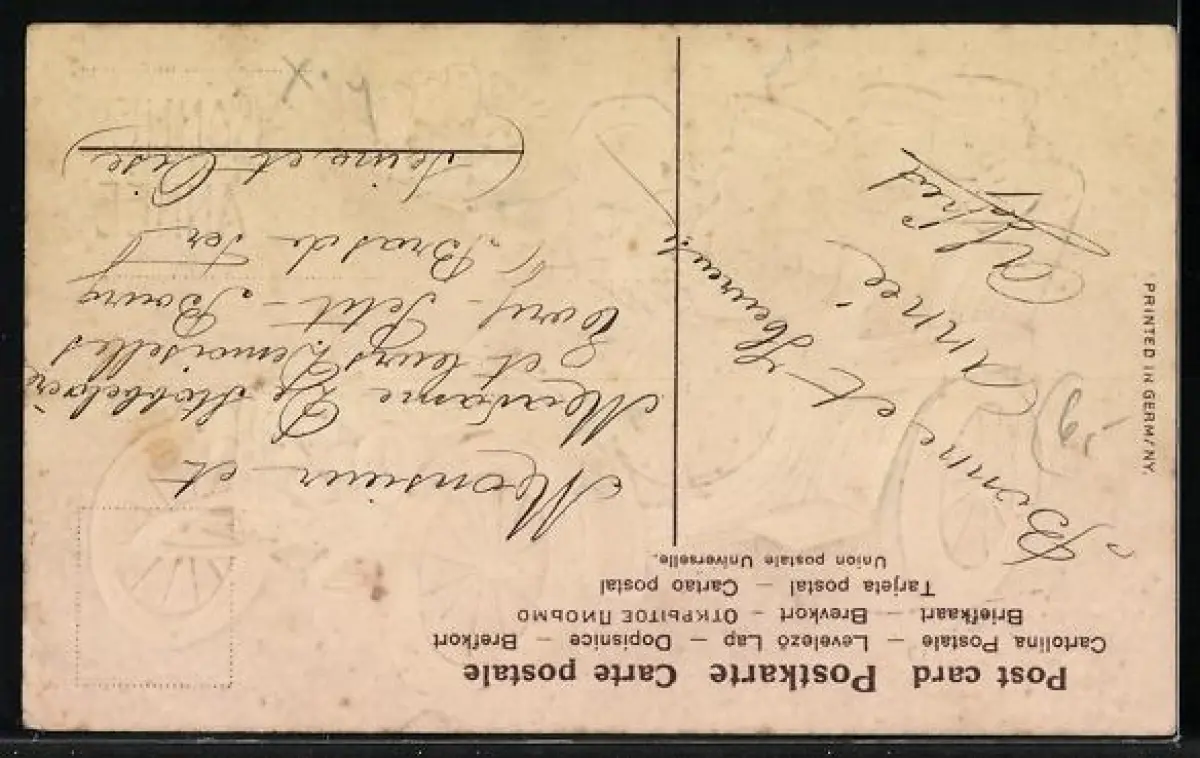 Post card Postkarte Carte postale
Cartolina Postale – Levelező Lap – Dopisnice – Brefkort
Briefkaart – Brevkort – ОТКРЫТОЕ ПИСЬМО
Tarjeta postal – Cartao postal
Union postale Universelle.
PRINTED IN GERMANY
Bonne et
Heureuse
Année
Alfred
Monsieur et
Madame De
& et leurs Demoiselles
Petit - Bourg
Bras de Fer
(Seine et Oise)